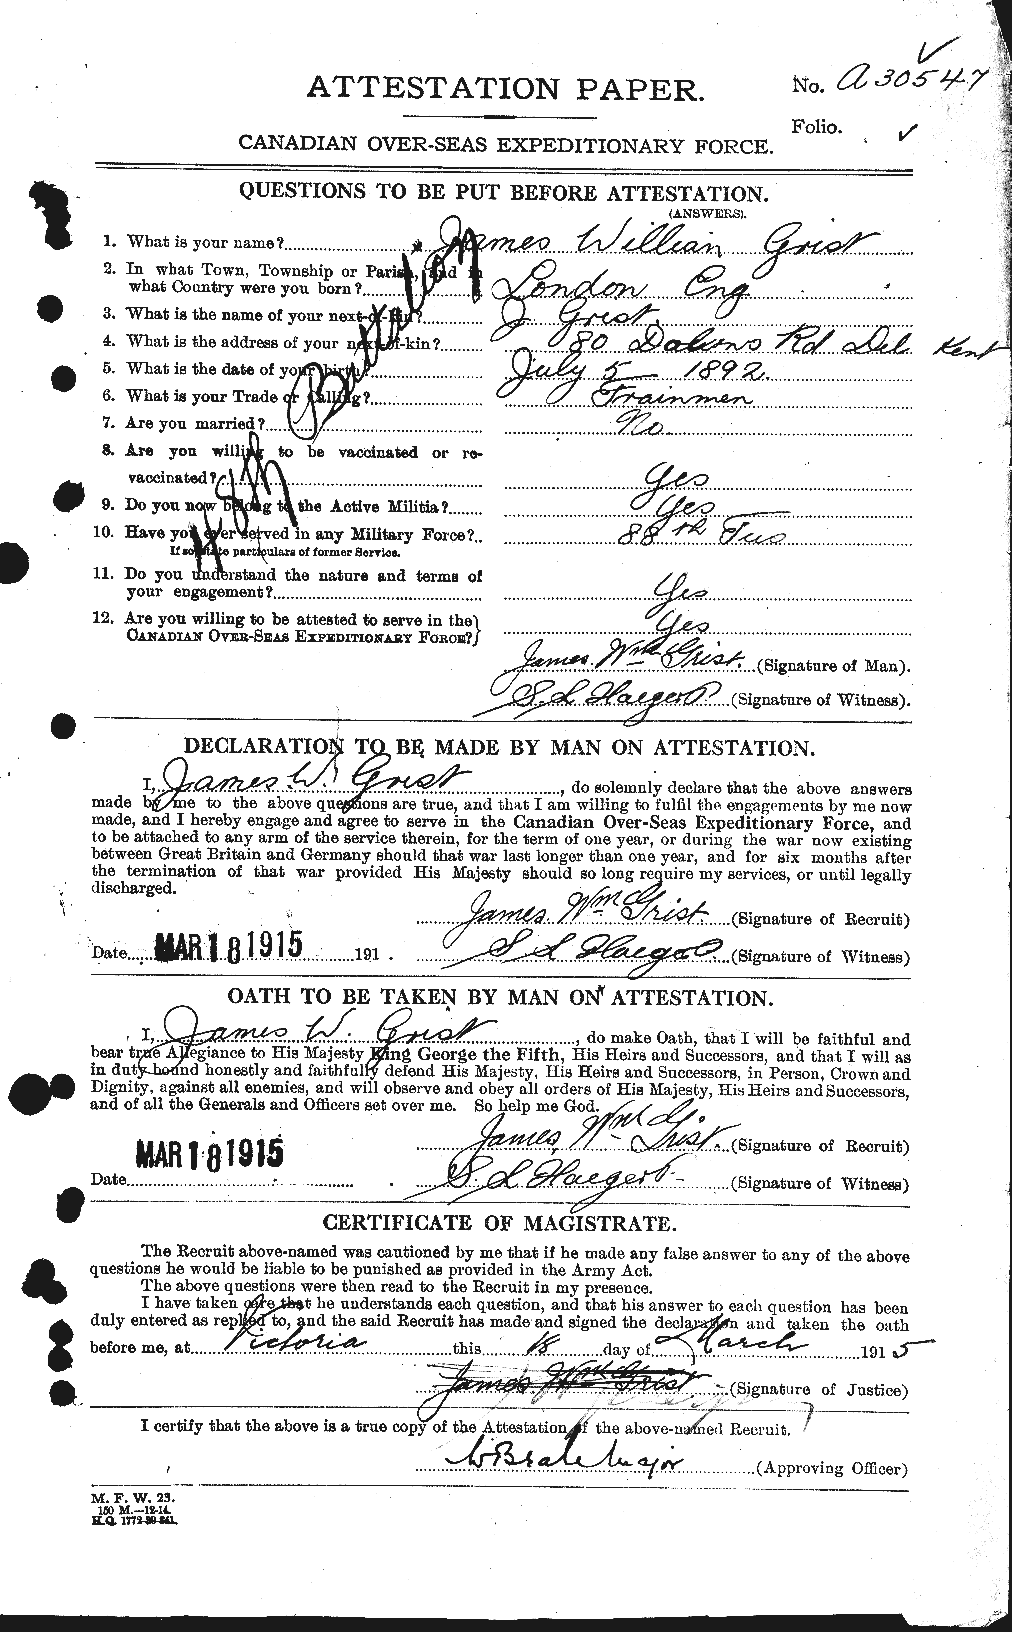 No. A30547
ATTESTATION PAPER.
Folio.
CANADIAN OVER-SEAS EXPEDITIONARY FORCE.
QUESTIONS TO BE PUT BEFORE ATTESTATION.
(ANSWERS).
1. What is your name? James William Grist
2. In what Town, Township or Parish, and in
what Country were you born? London Eng
3. What is the name of your next-of-kin? J Grist
4. What is the address of your next-of-kin? 80 Rd Kent
5. What is the date of your birth? July 5 1892.
6. What is your Trade or Calling? Trainmen
7. Are you married? No
8. Are you willing to be vaccinated or re-
vaccinated? Yes
9. Do you now belong to the Active Militia? Yes
10. Have you ever served in any Military Force? 88th Fus
If so, state particulars of former Service.
11. Do you understand the nature and terms of
your engagement? Yes
12. Are you willing to be attested to serve in the
CANADIAN OVER-SEAS EXPEDITIONARY FORCE? Yes
48th Battalion
James Wm Grist. (Signature of Man).
(Signature of Witness).
DECLARATION TO BE MADE BY MAN ON ATTESTATION.
I, James W. Grist, do solemnly declare that the above answers
made by me to the above questions are true, and that I am willing to fulfil the engagements by me now
made, and I hereby engage and agree to serve in the Canadian Over-Seas Expeditionary Force, and
to be attached to any arm of the service therein, for the term of one year, or during the war now existing
between Great Britain and Germany should that war last longer than one year, and for six months after
the termination of that war provided His Majesty should so long require my services, or until legally
discharged.
James. Wm Grist. (Signature of Recruit)
Date MAR 18 1915 191 . (Signature of Witness)
OATH TO BE TAKEN BY MAN ON ATTESTATION.
I, James W. Grist, do make Oath, that I will be faithful and
bear true Allegiance to His Majesty King George the Fifth, His Heirs and Successors, and that I will as
in duty bound honestly and faithfully defend His Majesty, His Heirs and Successors, in Person, Crown and
Dignity, against all enemies, and will observe and obey all orders of His Majesty, His Heirs and Successors,
and of all the Generals and Officers set over me. So help me God.
James, Wm Grist. (Signature of Recruit)
MAR 18 1915
Date (Signature of Witness)
CERTIFICATE OF MAGISTRATE.
The Recruit above-named was cautioned by me that if he made any false answer to any of the above
questions he would be liable to be punished as provided in the Army Act.
The above questions were then read to the Recruit in my presence.
I have taken care that he understands each question, and that his answer to each question has been
duly entered as replied to, and the said Recruit has made and signed the declaration and taken the oath
before me, at Victoria this 18 day of March 1915
James Wm Grist (Signature of Justice)
I certify that the above is a true copy of the Attestation of the above-named Recruit.
Major (Approving Officer)
M. F. W. 23.
150 M.—12-14.
H.Q. 1772-39-841.